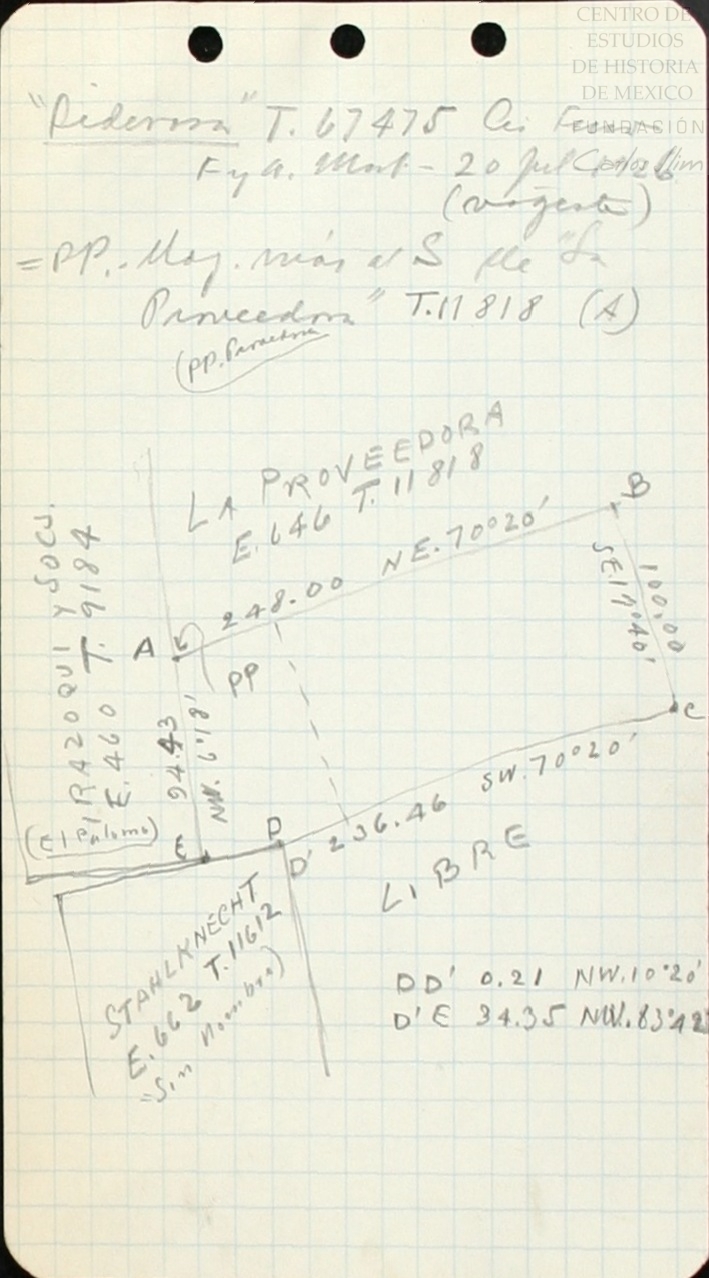 CENTRO DE
ESTUDIOS
DE HISTORIA
DE MEXICO
FUNDACIÓN
Carlos Slim
T. 67475
F y A. 20
(vigente)
= PP.- Moj. más al S de "La
Proveedora" T.11818 (A)
(PP. Proveedora
LA PROVEEDORA
E.646 T.11818
B
248.00 NE.70°20'
100.00
SE.19°40'
A
PP
C
IRAZOQUI Y SOCS.
E.460 T.9184
(El Palomo)
94.43
NW.6°18'
E
D
D'
236.46 SW.70°20'
LIBRE
STAHLKNECHT
E.662 T.11612
"Sin Nombre)
DD' 0.21 NW.10°20'
D'E 34.35 NW.83°42'